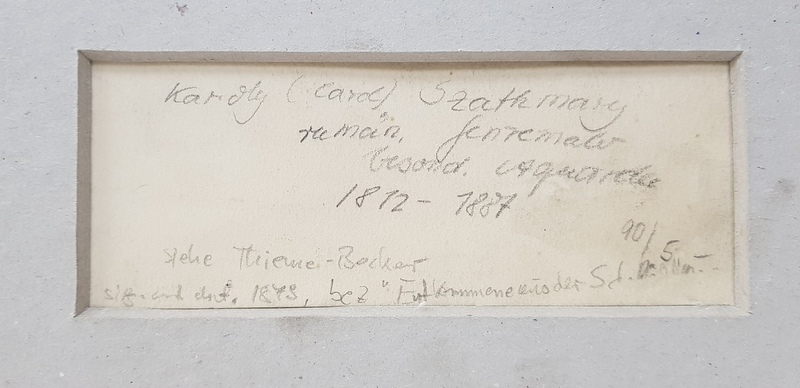 Karoly (Carol) Szathmary
rumän. Genremaler
besond. Aquarelle
1812 - 1887
90/5
siehe Thieme-Becker
sig. und dat. 1873, bez " aus der